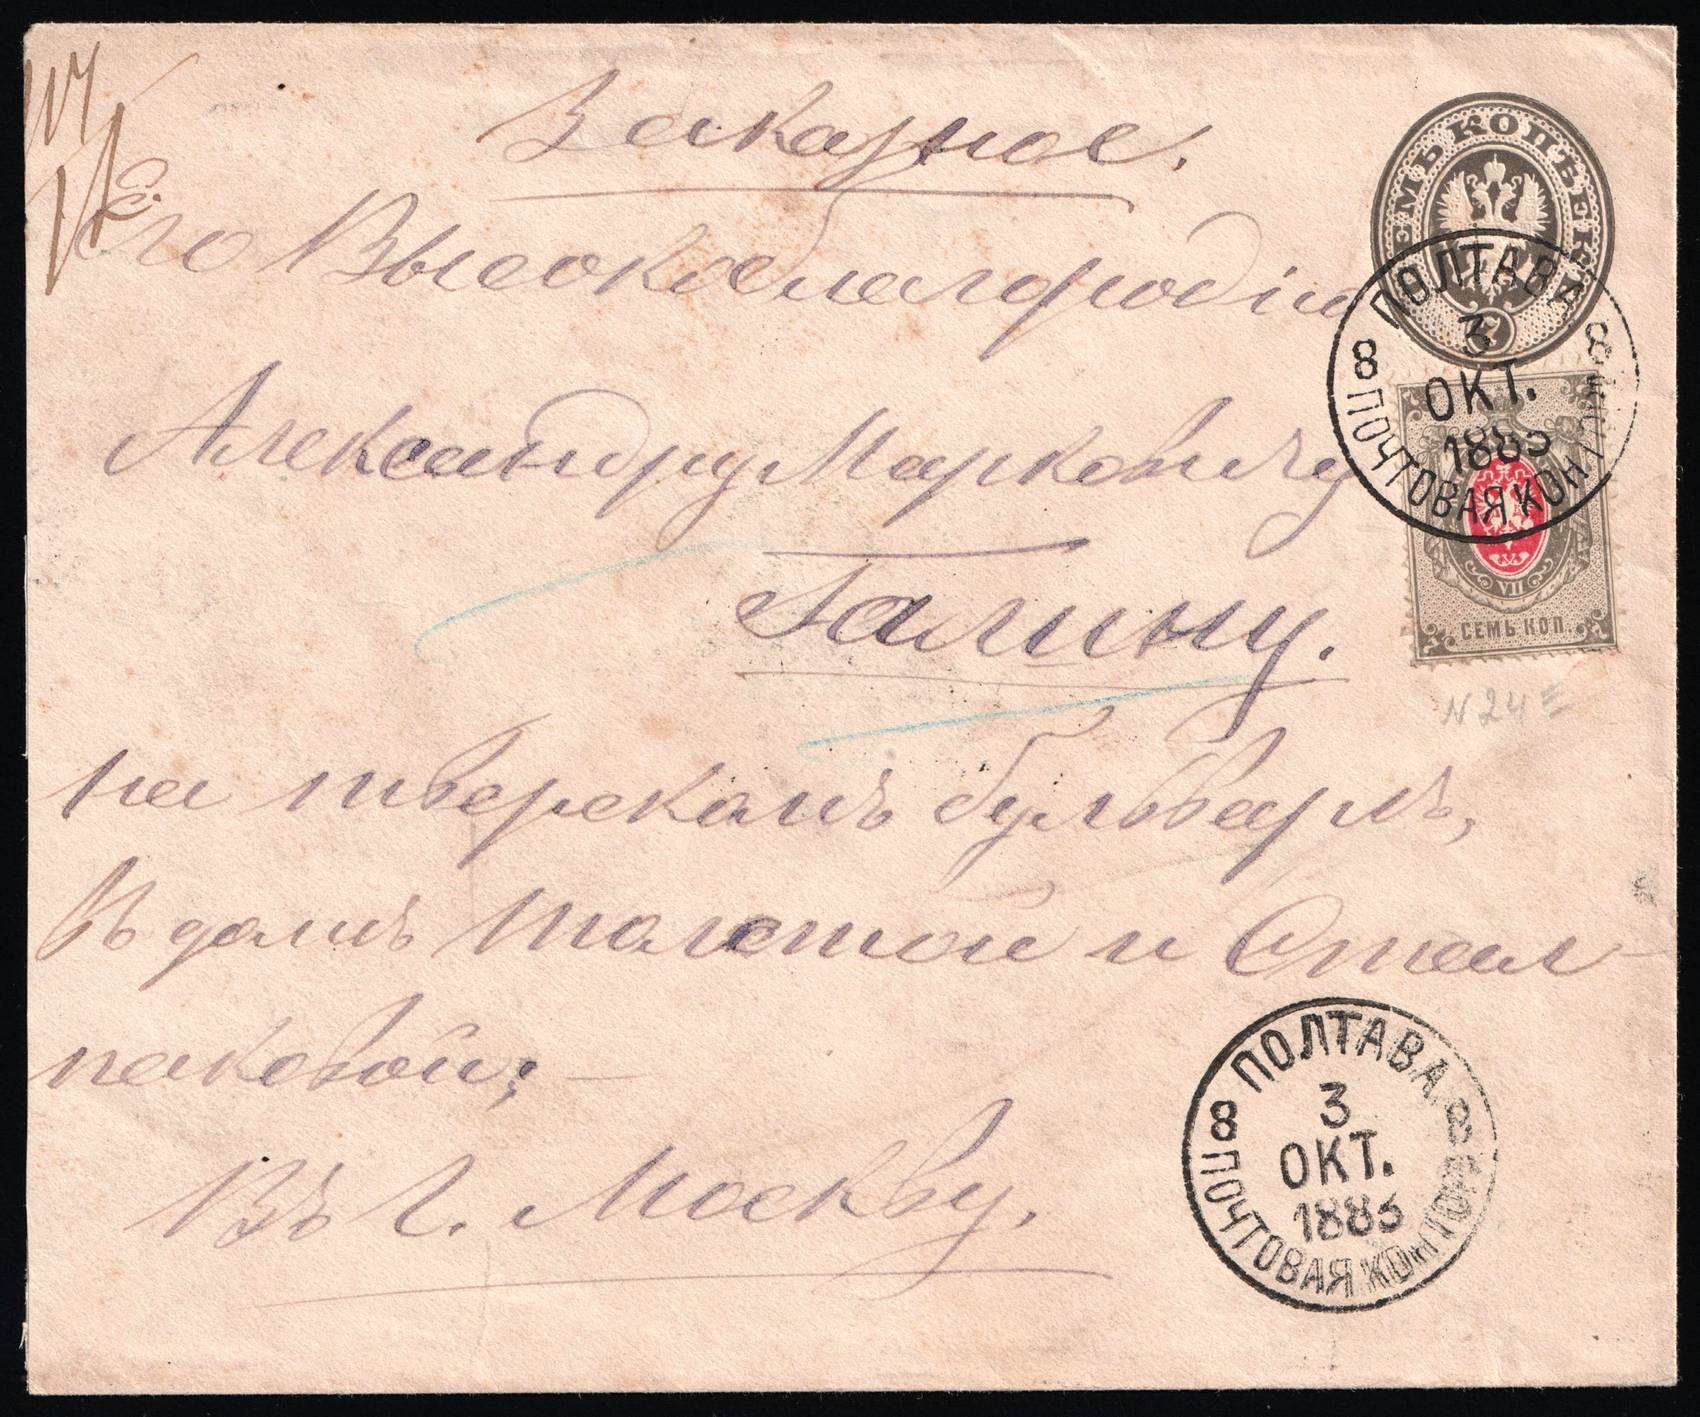 Заказное.
Его Высокоблагородію
Александру Марковичу
Галину.
на тверскомъ бульварѣ,
въ домѣ Толстой и Стал-
паковой;
Въ г. Москву.
СЕМЬ КОПѢЕКЪ
7
ПОЛТАВА
3
ОКТ.
1883
8 ПОЧТОВАЯ КОНТОРА 8
VII
СЕМЬ КОП.
N 24
ПОЛТАВА.
3
ОКТ.
1883
8 ПОЧТОВАЯ КОНТОРА 8